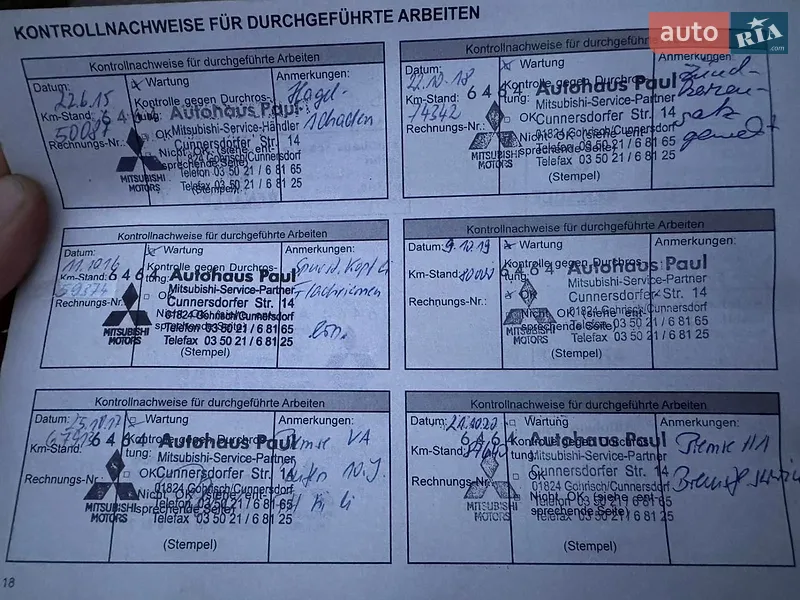 auto RIA .com
KONTROLLNACHWEISE FÜR DURCHGEFÜHRTE ARBEITEN
Kontrollnachweise für durchgeführte Arbeiten
Datum: 22.6.15
Wartung
Anmerkungen:
Hagel-
schäden
Kontrolle gegen Durchros-
Km-Stand: 6 4 6
Autohaus Paul
50087
Mitsubishi-Service-Händler
OK
Rechnungs-Nr.:
Cunnersdorfer Str. 14
Nicht OK (siehe ent-
01824 Gohrisch/Cunnersdorf
sprechende Seite)
Telefon 03 50 21 / 6 81 65
MITSUBISHI
MOTORS
Telefax 03 50 21 / 6 81 25
(Stempel)
Kontrollnachweise für durchgeführte Arbeiten
Datum:
22.10.18
Wartung
Anmerkungen:
Zünd-
Kontrolle gegen Durchros-
tung:
Km-Stand: 6 4 6 4
Autohaus Paul
74242
Mitsubishi-Service-Partner
OK
Cunnersdorfer Str. 14
Rechnungs-Nr.:
01824 Gohrisch/Cunnersdorf
Nicht OK (siehe ent-
sprechende Seite)
Telefon 03 50 21 / 6 81 65
MITSUBISHI
MOTORS
Telefax 03 50 21 / 6 81 25
(Stempel)
Kontrollnachweise für durchgeführte Arbeiten
Datum:
11.10.16
Wartung
Anmerkungen:
Kontrolle gegen Durchros-
Km-Stand: 6 4 6
Autohaus Paul
59874
Mitsubishi-Service-Partner
Flachriemen
Rechnungs-Nr.:
OK
Cunnersdorfer Str. 14
01824 Gohrisch/Cunnersdorf
Nicht OK (siehe ent-
sprechende Seite)
Telefon 03 50 21 / 6 81 65
MITSUBISHI
MOTORS
Telefax 03 50 21 / 6 81 25
(Stempel)
Kontrollnachweise für durchgeführte Arbeiten
Datum: 9.10.19
Wartung
Anmerkungen:
Kontrolle gegen Durchros-
tung:
Km-Stand: 6 4 6 4
Autohaus Paul
Mitsubishi-Service-Partner
Rechnungs-Nr.:
OK
Cunnersdorfer Str. 14
01824 Gohrisch/Cunnersdorf
Nicht OK (siehe ent-
sprechende Seite)
Telefon 03 50 21 / 6 81 65
MITSUBISHI
MOTORS
Telefax 03 50 21 / 6 81 25
(Stempel)
Kontrollnachweise für durchgeführte Arbeiten
Datum:
Wartung
Anmerkungen:
Kontrolle gegen Durchros-
Bremse VA
Km-Stand: 6 4 6
Autohaus Paul
Mitsubishi-Service-Partner
Rechnungs-Nr.:
OK
Cunnersdorfer Str. 14
01824 Gohrisch/Cunnersdorf
Nicht OK (siehe ent-
sprechende Seite)
Telefon 03 50 21 / 6 81 65
MITSUBISHI
MOTORS
Telefax 03 50 21 / 6 81 25
(Stempel)
Kontrollnachweise für durchgeführte Arbeiten
Datum: 21.10.20
Wartung
Anmerkungen:
Kontrolle gegen Durchros-
tung:
Bremse HA
Km-Stand: 6 4 6 4
Autohaus Paul
Mitsubishi-Service-Partner
Rechnungs-Nr.:
OK
Cunnersdorfer Str. 14
01824 Gohrisch/Cunnersdorf
Nicht OK (siehe ent-
sprechende Seite)
Telefon 03 50 21 / 6 81 65
MITSUBISHI
MOTORS
Telefax 03 50 21 / 6 81 25
(Stempel)
18